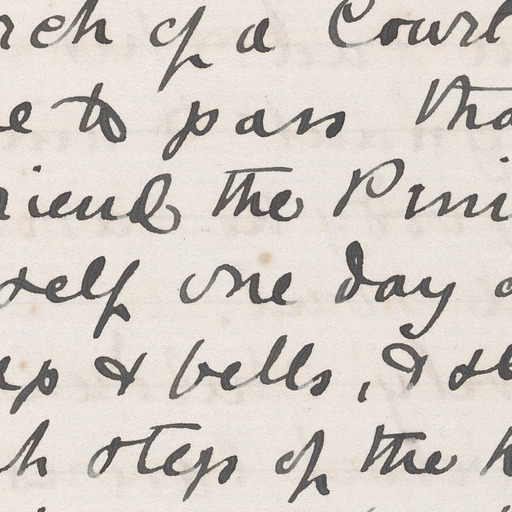 rch of a Court
e to pass tha
riend the Prin
self one day a
ap & bells, & st
h steps of the k